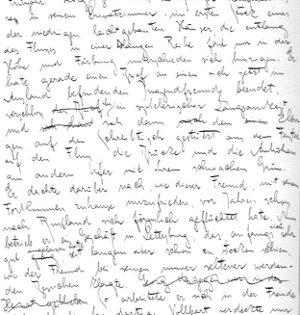 in seinem Privatzimmer, im ersten Stock eines
der niedrigen, leichtgebauten Häuser die entlang
des Flusses in einer langen Reihe fast nur in der
Höhe und Färbung unterschieden sich hinzogen. Er
hatte gerade einen Brief an einen sich jetzt im
Ausland befindenden Jugendfreund beendet,
verschloß in spielerischer Langsamkeit
und sah dann den Ellbo
gen auf den Schreibtisch gestützt aus dem Fenster
auf den Fluß, die Brücke und die Anhöhen
am andern Ufer mit ihrem schwachen Grün.
Er dachte darüber nach, wie dieser Freund, mit seinem
Fortkommen zuhause unzufrieden, vor Jahren schon
nach Rußland sich förmlich geflüchtet hatte. Nun
betrieb er ein Geschäft in Petersburg, das anfangs sich sehr
gut seit langem aber schon zu stocken schien,
wie der Freund bei seinen immer seltener werden-
den Besuchen klagte.
So arbeitete er sich in der Fremde
Vollbart verdeckte nur